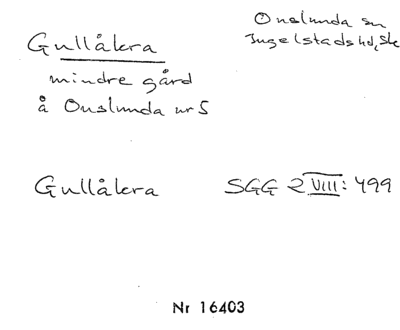 Gullåkra
Onslunda sn
Ingelstads hd, Skå
mindre gård
å Onslunda nr 5
Gullåkra SGG 2 VIII: 499
Nr 16403